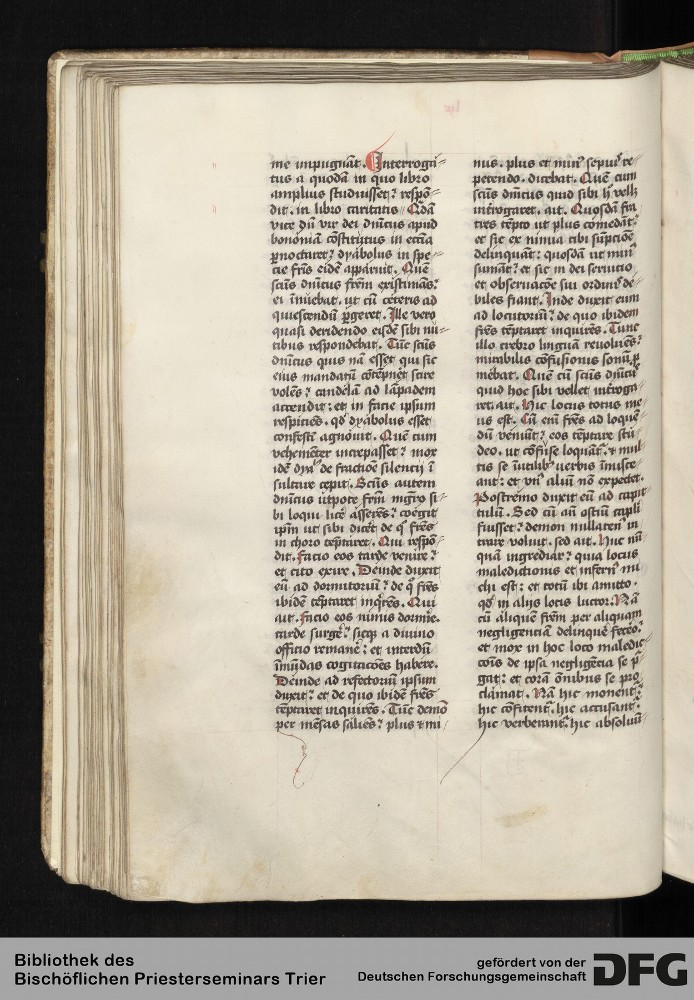 me impugnāt. Interrogā
tus a quodā in quo libro
amplius studuisset? respō
dit. in libro caritatis. Qdā
vice dū vir dei dn̄icus apud
bononiā cōstitutus in ecc̄ia
ꝑnoctaret? dyabolus in spe
cie fr̄is eidē apparuit. Quē
sc̄us dn̄icus frēm existimās?
ei īnuebat. ut cū ceteris ad
quiescendū ꝑgeret. Ille vero
quasi deridendo eisdē sibi nu
tibus respondebat. Tūc sc̄us
dn̄icus quis nā esset qui sic
eius mandatū cōtēpnet scire
volēs? candelā ad lāpadem
accendit: et in facie ipsum
respiciēs. qd dyabolus esset
confestī agnouit. Quē cum
vehemēter increpasset? mox
idē dyaꝰ de fractiōe silencij ī
sultare cepit. Sc̄us autem
dn̄icus utpote frm̄ mgrō si
bi loqui licē asserēs? coegit
ip̄m ut sibi dicēt de q̊ fr̄es
in choro tēptaret. Qui respō
dit. facio eos tarde venire?
et cito exire. Deinde duxit
eū ad dormitoriū? de q̊ fr̄es
ibidē tēptaret inqͥres. Qui
ait. facio eos nimis dormire.
tarde surgē? sicqꝫ a diuino
officio remanē? et interdū
īmūdas cogitacōes habere.
Deinde ad refectoriū ipsum
duxit? et de quo ibidē fr̄es
tēptaret inquirēs. Tūc demō
per mēsas saliēs? plus ⁊ mi
nus. plus et minꝰ sepiuꝰ re
petendo. dicebat. Quē cum
sc̄us dn̄icus quid sibi h̄ vellꝫ
int̄rogaret. ait. Quosdā fra
tres tēpto ut plus comedāt?
et sic ex nimia cibi sūpciōe
delinquāt: quosdā ut minꝰ
sumāt? et sic in dei seruicio
et obseruacōe sui ordinꝭ de
biles fiant. Inde duxit eum
ad locutoriū? de quo ibidem
fr̄es tēptaret inquirēs. Tunc
illo crebro linguā reuoluēs?
mirabilis cōfusionis sonū ꝓ
mebat. Quē cū sc̄us dn̄icꝰ
quid hoc sibi vellet int̄roga
ret. ait. Hic locus totus me
us est. Cū eni fr̄es ad loquē
dū veniūt? eos tēptare stu
deo. ut cōfuse loquāt. ⁊ mul
tis se īutilibꝰ uerbis īmisce
ant: et vnꝰ aliū nō expectet.
Postremo duxit eū ad capit
tulū. Sed cū añ ostiū capli
fuisset? demon nullatenꝰ in
trare voluit. sed ait. Huc nū
quā ingrediar? quia locus
maledictionis et infernꝰ mi
chi est: et totū ibi amitto.
qd in alijs locis lucror. Nā
cū aliquē frēm per aliquam
negligenciā delinquē̄ fecero?
et mox in hoc loco maledic
cōis de ipsa negligēcia se p̄
gat: et corā ōnibus se pro
clamat. Nā hic monent̄?
hic cōfitent̄. hic accusant̄.
hic verberant̄. hic absoluū
Bibliothek des
Bischöflichen Priesterseminars Trier
gefördert von der
Deutschen Forschungsgemeinschaft
DFG